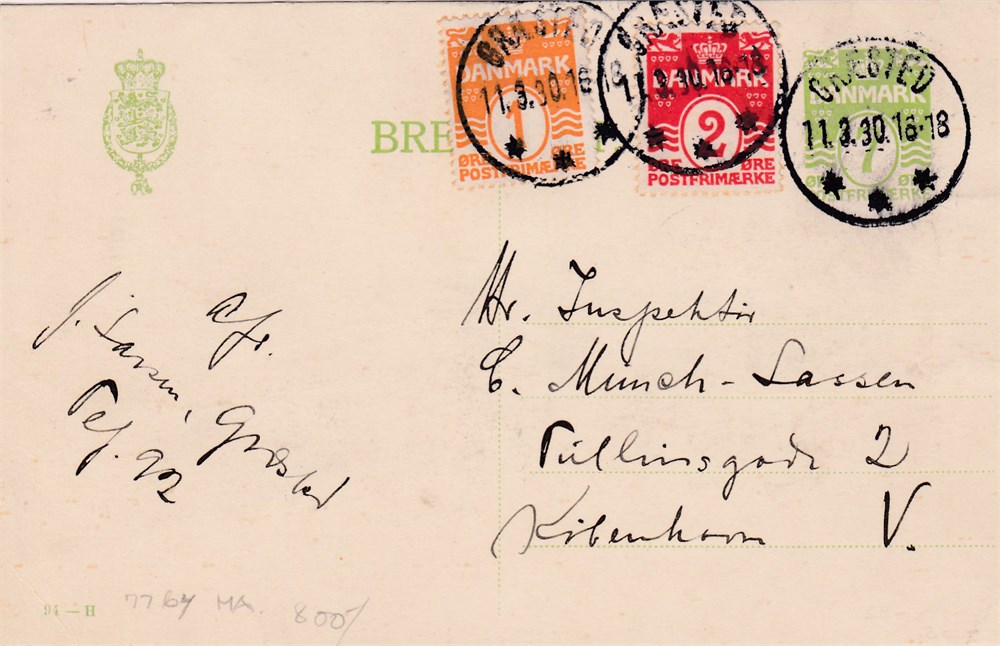 BRE
GRÆSTED
11.3.30.16-18
DANMARK
1
ØRE ØRE
POSTFRIMÆRKE
GRÆSTED
11.3.30.16-18
DANMARK
2
ØRE ØRE
POSTFRIMÆRKE
GRÆSTED
11.3.30.16-18
DANMARK
7
ØRE ØRE
POSTFRIMÆRKE
Hr. Inspektør
C. Munch-Lassen
Tullinsgade 2
København V.
Afs.
J. Larsen, Græsted
Telf. 92
94 — H
7764 MA. 800/